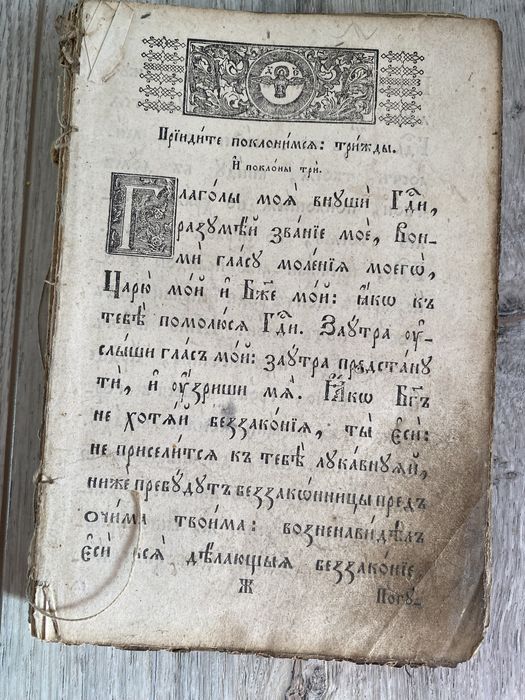 Прїиди́те поклони́мся: три́жды.
И҆ поклоны̀ трѝ.
Глаго́лы моѧ̑ внꙋшѝ Гдⷭ҇и,
разꙋмѣ́й зва́нїе моѐ, Вон-
мѝ гла́сꙋ моле́нїѧ моегѡ̀,
Царю̀ мо́й и҆ Бж҃е мо́й: ꙗ҆́кѡ къ
тебѣ̀ помолю́сѧ Гдⷭ҇и. Заꙋ́тра ᲂу҆-
слы́ши гла́съ мо́й: заꙋ́тра предста́нꙋ
тѝ, и҆ ᲂу҆́зриши мѧ̀. Ꙗ҆́кѡ Бг҃ъ
не хотѧ́й беззако́нїѧ, ты̀ є҆сѝ:
не присели́тсѧ къ тебѣ̀ лꙋка́внꙋѧй,
нижѐ пребꙋ́дꙋтъ беззакѡ́нницы предъ
ѻ҆чи́ма твои́ма: возненави́дѣлъ
є҆сѝ всѧ̑ дѣ́лающыѧ беззако́нїе,
Ж
Погꙋ-